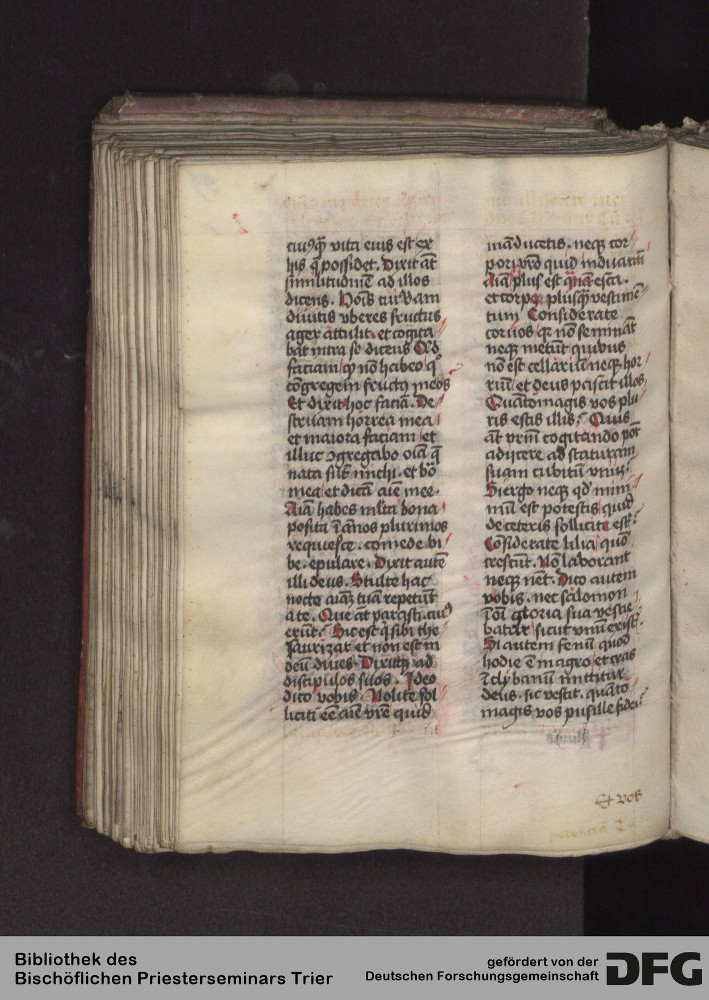 cuiusqȝ vita eius est ex
his q̄ possidet. Dixit āt
similitudinē ad illos
dicens. Hoīs cuiusdam
diuitis vberes fructus
ager attulit. et cogita
bat intra se dicens Qͥd
faciam qͣ nō habeo qͦ
cōgregem fructꝰ meos
Et dixit hoc faciā. De
struam horrea mea
et maiora faciam et
illuc ꝯgregabo oīa q̄
nata sūt michi. et bōa
mea et dicā aīe mee.
Aīa habes mlta bona
posita ī ānos plurimos
requiesce. comede bi
be. epulare. Dixit autē
illi deus. Stulte hac
nocte aīaȝ tuā repetūt
a te. Que āt parasti. cuiꝰ
erūt. Sic est q̄ sibi the
saurizat et non est in
deū diues. Dixitqȝ ad
discipulos suos. Ideo
dico vobis. Nolite sol
liciti eē aīe vr̄e quid
māducetis. neqȝ cor
pori vr̄o quid induamī
Aīa plus est qͣ̄ esca.
et corpꝰ plusqͣ̄ vestimē
tum Considerate
coruos qꝛ nō semināt
neqȝ metūt quibus
nō est cellariū neqȝ hor
riū et deus pascit illos
Quātomagis vos plu
ris estis illis. Quis
āt vrm̄ cogitando pōt
adiicere ad staturam
suam cubitū vnū.
Si ergo neqȝ qd̄ mini
mū est potestis quid
de ceteris solliciti estis
Cōsiderate lilia quōo
crescūt. Nō laborant
neqȝ nēt. Dico autem
vobis. nec salomon
ī oī gloria sua vestie
batur sicut vnū ex istis
Si autem fenū quod
hodie ē in agro et cras
ī clybanū mittitur
deus sic vestit. quāto
magis vos pusille fidei
Et vos
Bibliothek des
Bischöflichen Priesterseminars Trier
gefördert von der
Deutschen Forschungsgemeinschaft
DFG